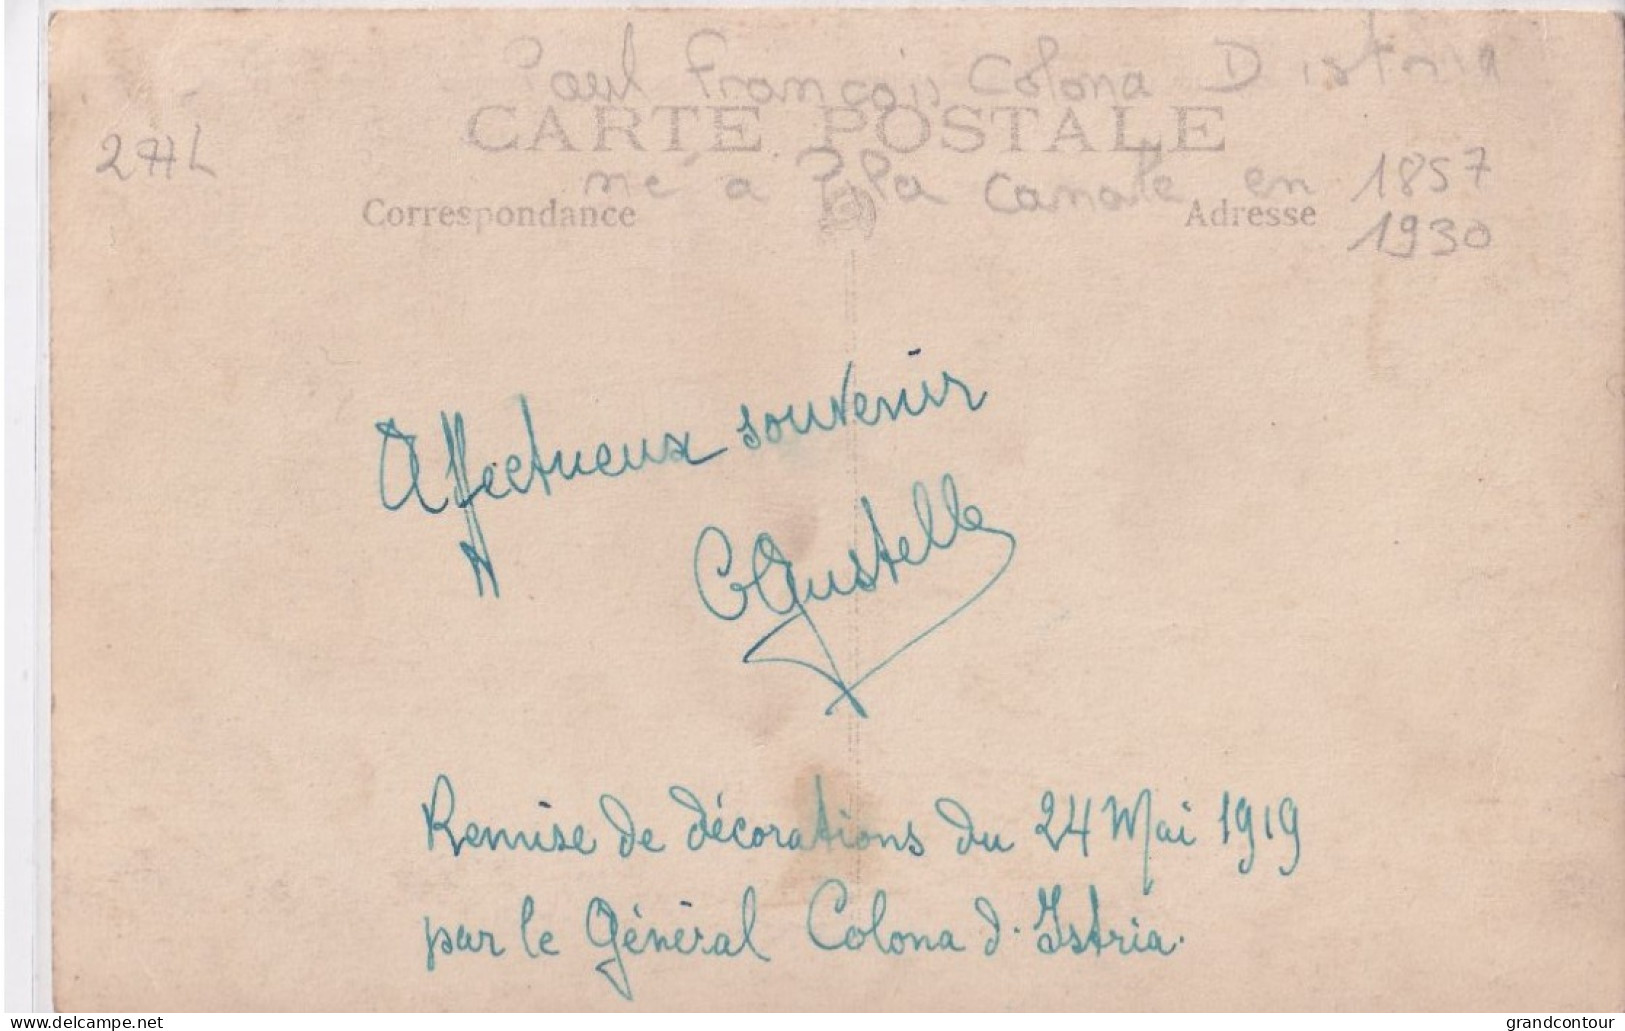 Paul François Colona D istria
CARTE POSTALE
277L
né a Pila Canale en 1857
Correspondance
Adresse
1930
Affectueux souvenir
Remise de décorations du 24 Mai 1919
par le Général Colona d'Istria.
www.delcampe.net
grandcontour